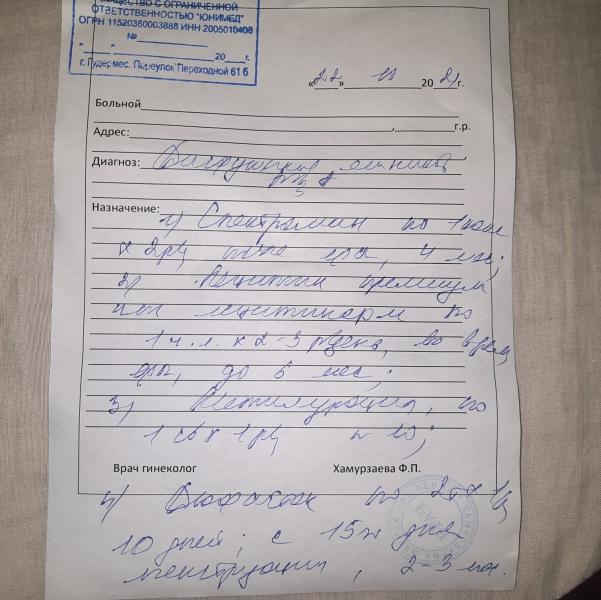 ОБЩЕСТВО С ОГРАНИЧЕННОЙ
ОТВЕТСТВЕННОСТЬЮ "ЮНИМЕД"
ОГРН 11520360003888 ИНН 2005010408
№
" " 20 г.
г. Гудермес. Переулок Переходной 61 б
«22» 10 2021г.
Больной
г.р.
Адрес:
Диагноз: Дисфункция яичников
Назначение:
1) Спектрамин по 1 капс
х 2рд после еды, 4 мес;
2) Лецитин премиум
или лецитинорм по
1 ч.л. х 2-3 р день, во время
еды, до 6 мес;
3) Метилурацил, по
1 св х 1рд n 10;
Врач гинеколог Хамурзаева Ф.П.
4) Дюфастон по 2т х 1д
10 дней, с 15го дня
менструации, 2-3 мес.